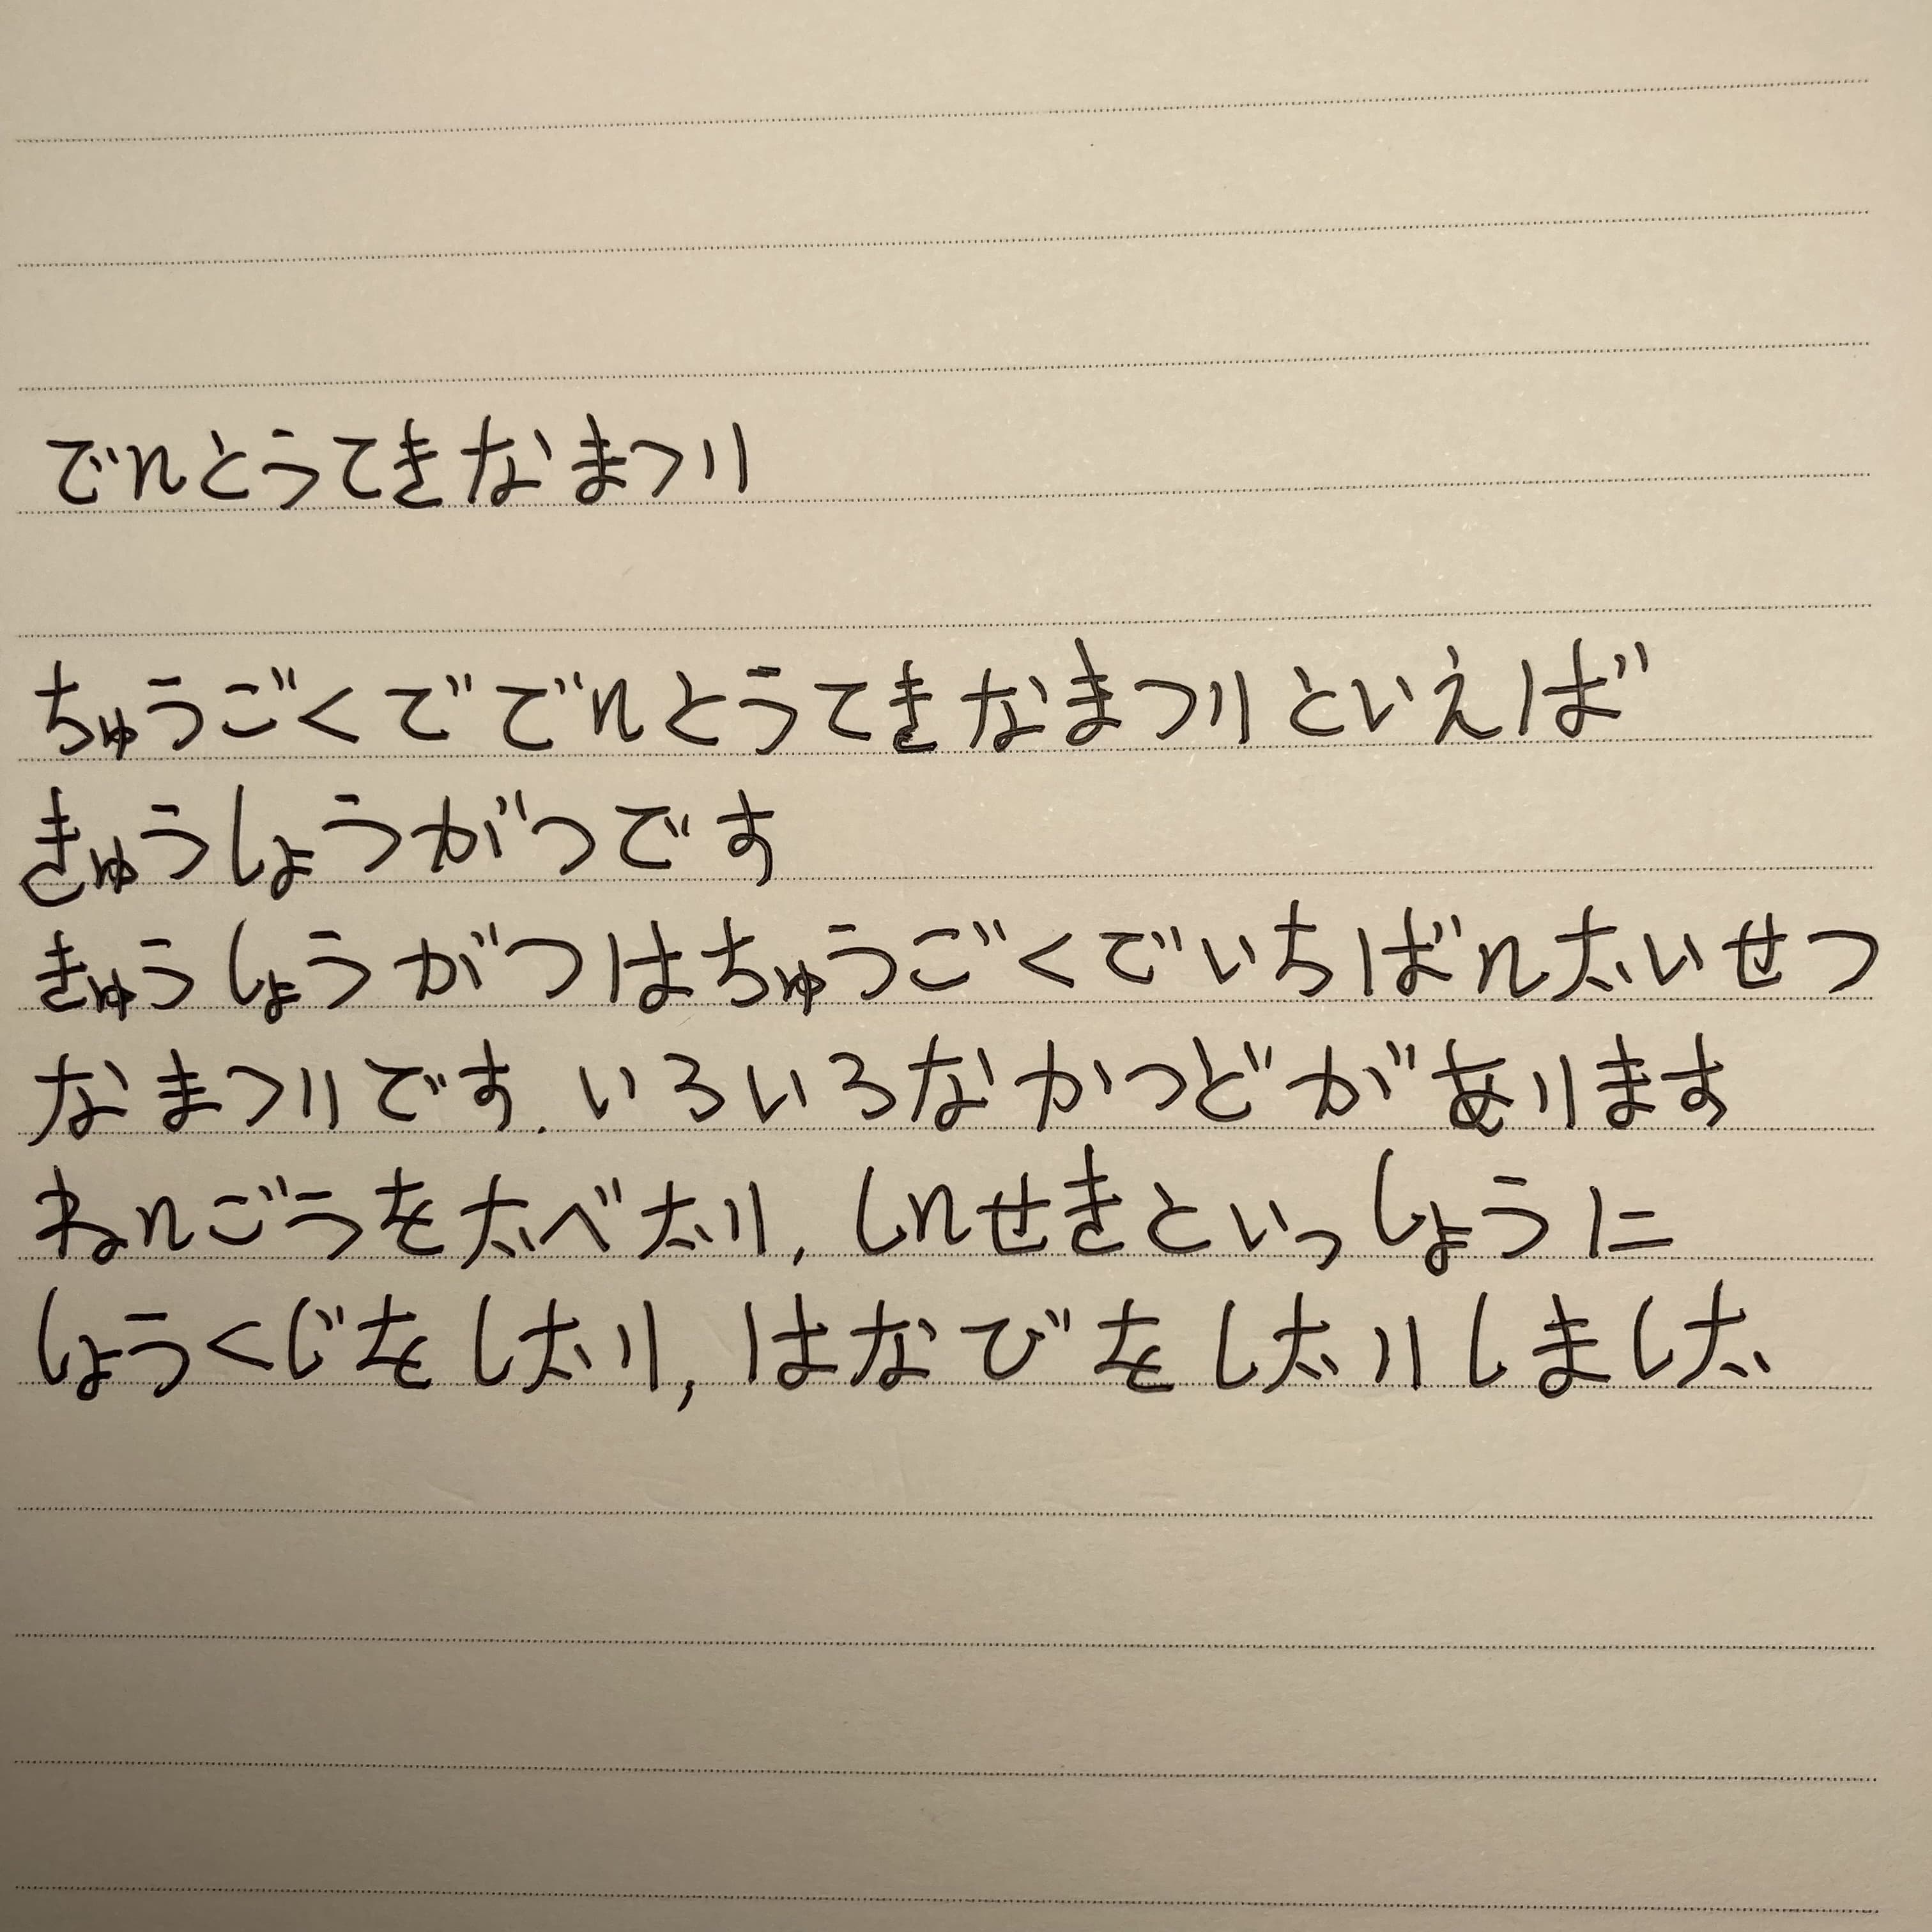 でんとうてきなまつり
ちゅうごくででんとうてきなまつりといえば
きゅうしょうがつです
きゅうしょうがつはちゅうごくでいちばんたいせつ
なまつりです.いろいろなかつどがあります
ねんごうをたべたり,しんせきといっしょうに
しょうくじをしたり,はなびをしたりしました